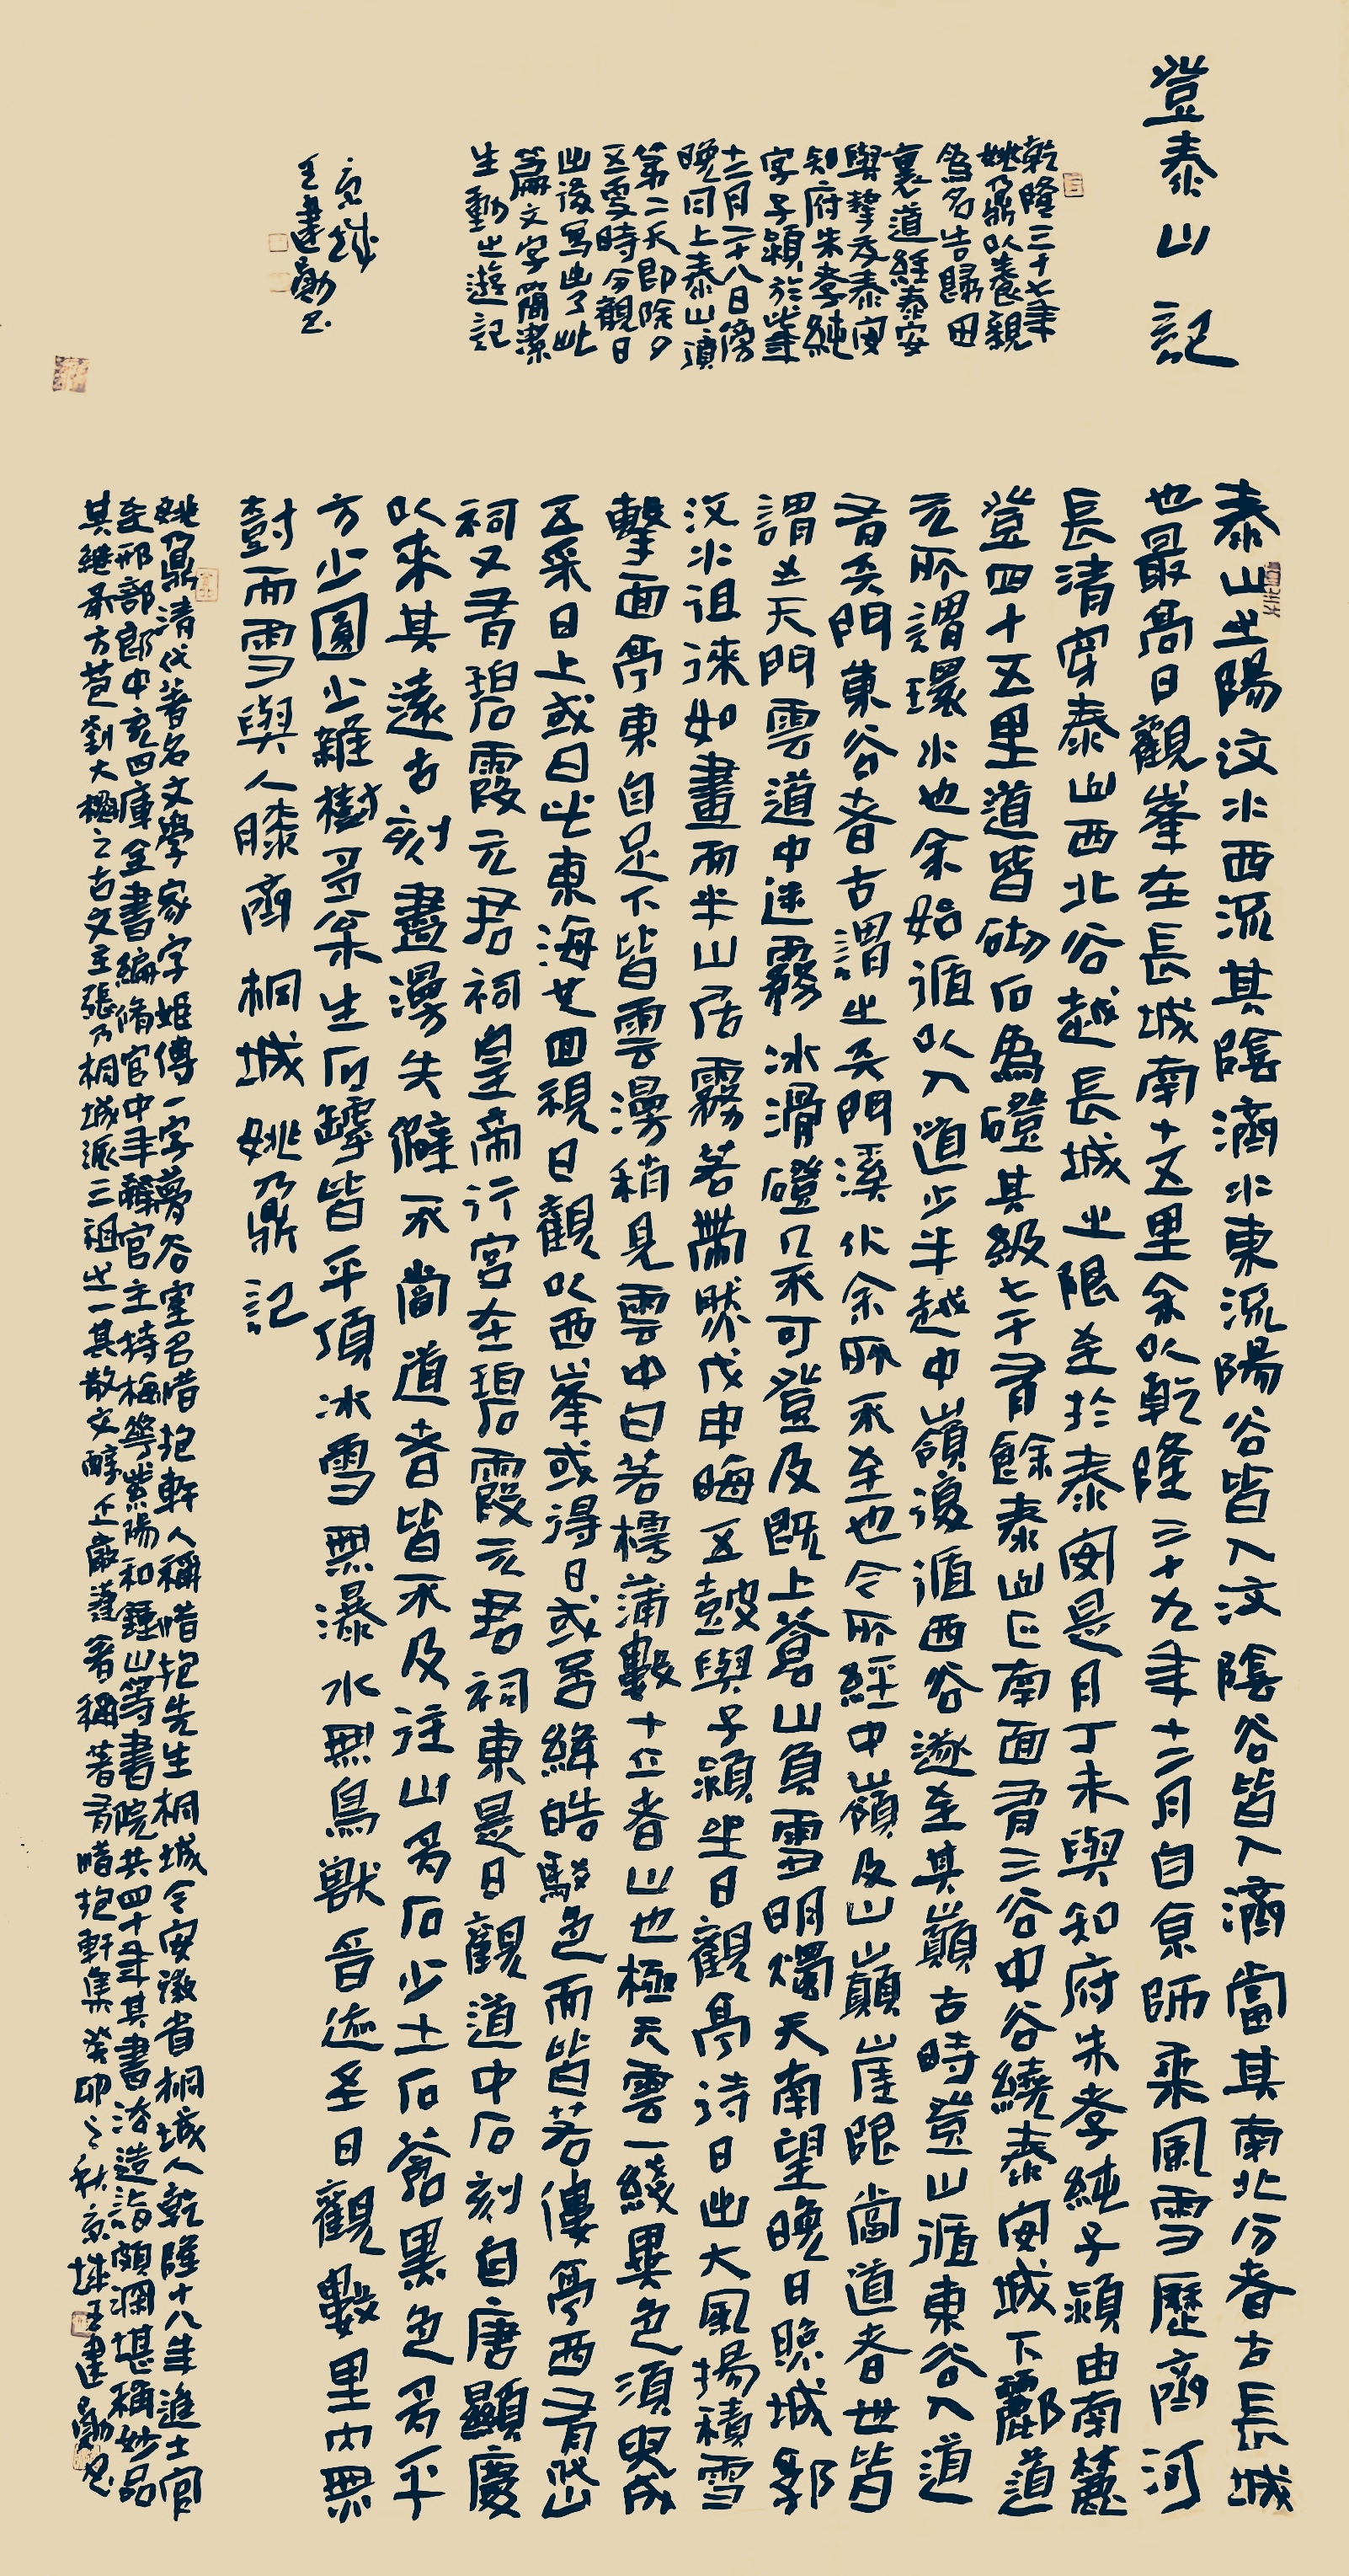 登泰山記
乾隆三十七年
姚鼐以養親
為名告歸田
裏道經泰安
與摯友泰安
知府朱孝純
字子潁於此年
十二月二十八日傍
晚同上泰山頂
第二天即除夕
五更時分觀日
出後寫出了此
篇文字簡潔
生動之遊記
京城
王建勛書
泰山之陽汶水西流其陰濟水東流陽谷皆入汶陰谷皆入濟當其南北分者古長城
也最高日觀峯在長城南十五里余以乾隆三十九年十二月自京師乘風雪歷齊河
長清穿泰山西北谷越長城之限至於泰安是月丁未與知府朱孝純子潁由南麓
登四十五里道皆砌石為磴其級七千有餘泰山正南面有三谷中谷繞泰安城下酈道
元所謂環水也余始循以入道少半越中嶺復循西谷遂至其巔古時登山循東谷入道
有天門東谷者古謂之天門溪水余所不至也今所經中嶺及山巔崖限當道者世皆
謂之天門雲道中迷霧冰滑磴几不可登及既上蒼山負雪明燭天南望晚日照城郭
汶水徂徠如畫而半山居霧若帶然戊申晦五鼓與子潁坐日觀亭待日出大風揚積雪
擊面亭東自足下皆雲漫稍見雲中白若樗蒲數十立者山也極天雲一綫異色須臾成
五采日上或曰此東海也回視日觀以西峯或得日或否絳皓駁色而皆若僂亭西有岱
祠又有碧霞元君祠皇帝行宮在碧霞元君祠東是日觀道中石刻自唐顯慶
以來其遠古刻盡漫失僻不當道者皆不及往山多石少土石蒼黑色多平
方少圜少雜樹多松生石罅皆平頂冰雪無瀑水無鳥獸音迹至日觀數里內無
樹而雪與人膝齊 桐城姚鼐記
姚鼐清代著名文學家字姬傳一字夢谷室名惜抱軒人稱惜抱先生桐城今安徽省桐城人乾隆十八年進士官
至刑部郎中充四庫全書編脩官中年辭官主持梅花紫陽和鍾山等書院共四十年其書法造詣頗深堪稱妙品
其繼承方苞劉大櫆之古文主張乃桐城派三祖之一其散文醇正嚴謹著稱著有惜抱軒集 癸卯之秋京城王建勛書